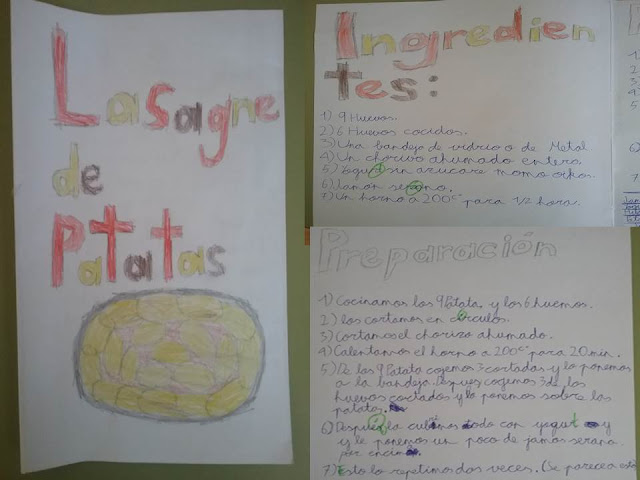 Lasagne
de
Patatas
Ingredien
tes:
1) 9 Huevos.
2) 6 Huevos cocidos.
3) Una bandeja de vidrio o de Metal
4) Un chorizo ahumado entero.
5) Yogurt sin azucare
6) Jamon serano.
7) Un horno a 200c° para 1/2 hora.
Preparación
1) Cocinamos las 9 Patata y los 6 huemos.
2) los cortamos en circulos.
3) Cortamos el chorizo ahumado.
4) Calentamos el horno a 200c° para 20 min.
5) De las 9 Patata cojemos 3 cortadas y lo ponemos
a la bandeja. Despues cojemos 3 de los
huevos cortados y lo ponemos sobre las
patatas.
6) Despues la todo con yogurt y
y le ponemos un poco de jamos serano
por encima.
7) Esto lo repetimos dos veces. (Se parecea